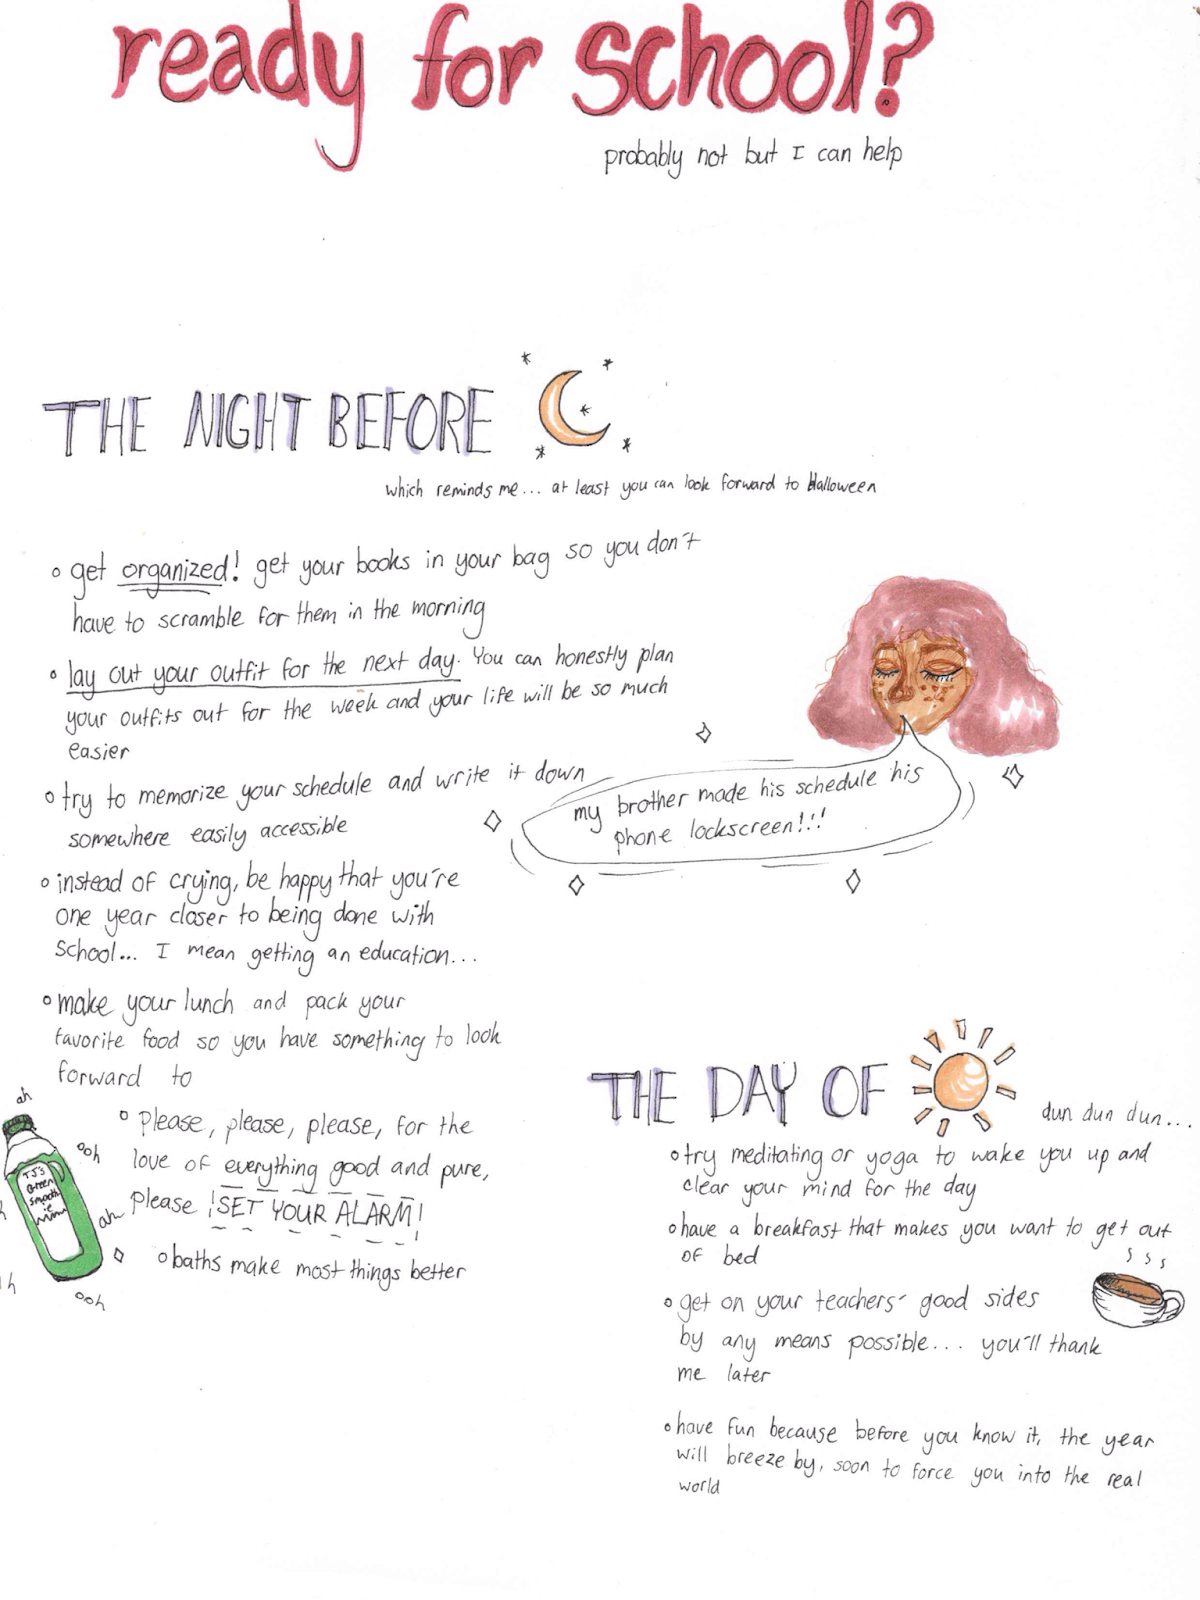 ready for school?
probably not but I can help
THE NIGHT BEFORE
which reminds me... at least you can look forward to Halloween
get organized! get your books in your bag so you don't
have to scramble for them in the morning
lay out your outfit for the next day. You can honestly plan
your outfits out for the week and your life will be so much
easier
try to memorize your schedule and write it down
somewhere easily accessible
my brother made his schedule his
phone lockscreen!!!
instead of crying, be happy that you're
one year closer to being done with
school... I mean getting an education...
make your lunch and pack your
favorite food so you have something to look
forward to
Please, please, please, for the
love of everything good and pure,
please ¡SET YOUR ALARM!
baths make most things better
ah
ooh
ah
ooh
TJ's
Green
Smooth
ie
THE DAY OF
dun dun dun...
try meditating or yoga to wake you up and
clear your mind for the day
have a breakfast that makes you want to get out
of bed
get on your teachers' good sides
by any means possible... you'll thank
me later
have fun because before you know it, the year
will breeze by, soon to force you into the real
world